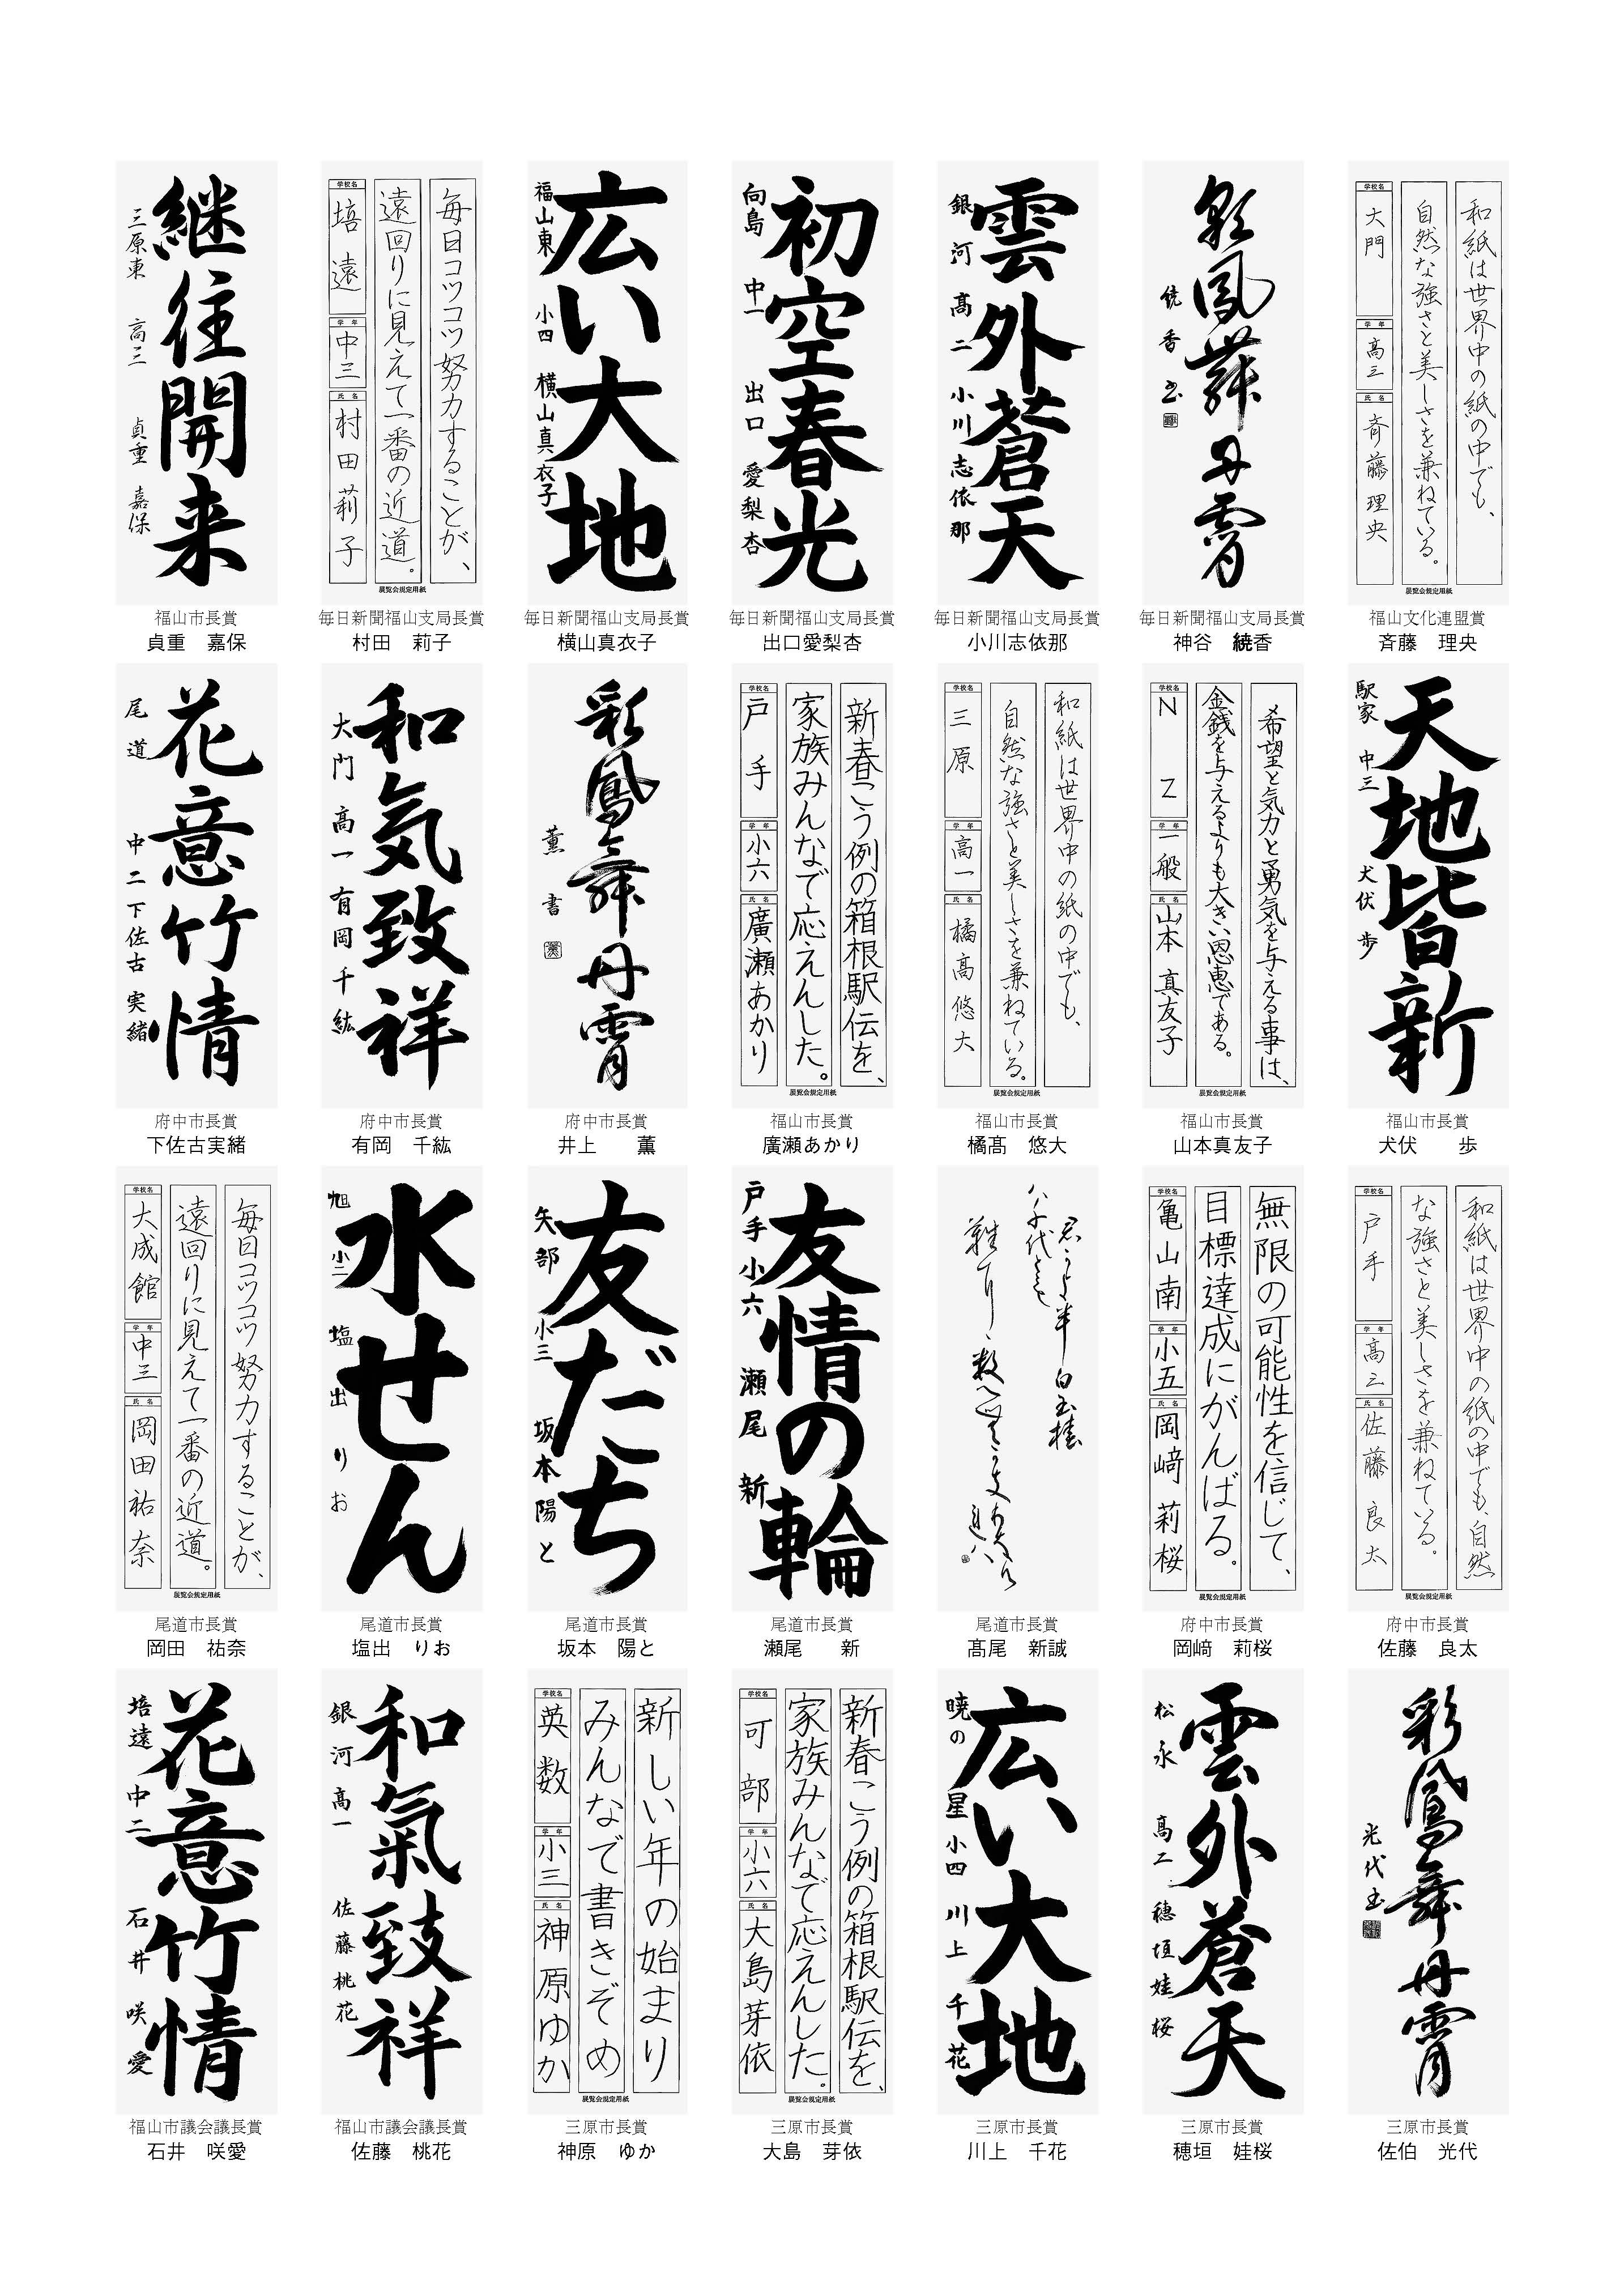 継往開来
三原東 高三 貞重 嘉保
福山市長賞
貞重 嘉保
毎日コツコツ努力することが、
遠回りに見えて一番の近道。
学校名 培遠 学年 中三 氏名 村田莉子
展覧会規定用紙
毎日新聞福山支局長賞
村田 莉子
広い大地
福山東 小四 横山真衣子
毎日新聞福山支局長賞
横山真衣子
初空春光
向島 中一 出口 愛梨杏
毎日新聞福山支局長賞
出口愛梨杏
雲外蒼天
銀河 高二 小川志依那
毎日新聞福山支局長賞
小川志依那
彩鳳舞丹霄
繞香 書
毎日新聞福山支局長賞
神谷 繞香
和紙は世界中の紙の中でも、
自然な強さと美しさを兼ねている。
学校名 大門 学年 高三 氏名 斉藤理央
展覧会規定用紙
福山文化連盟賞
斉藤 理央
花意竹情
尾道 中二 下佐古 実緒
府中市長賞
下佐古実緒
和気致祥
大門 高一 有岡千紘
府中市長賞
有岡 千紘
彩鳳舞丹霄
薫書
府中市長賞
井上 薫
新春こう例の箱根駅伝を、
家族みんなで応えんした。
学校名 戸手 学年 小六 氏名 廣瀬あかり
展覧会規定用紙
福山市長賞
廣瀬あかり
和紙は世界中の紙の中でも、
自然な強さと美しさを兼ねている。
学校名 三原 学年 高一 氏名 橘高悠大
展覧会規定用紙
福山市長賞
橘髙 悠大
希望と気力と勇気を与える事は、
金銭を与えるよりも大きい恩恵である。
学校名 NZ 学年 一般 氏名 山本真友子
展覧会規定用紙
福山市長賞
山本真友子
天地皆新
駅家 中三 犬伏 歩
福山市長賞
犬伏 歩
毎日コツコツ努力することが、
遠回りに見えて一番の近道。
学校名 大成館 学年 中三 氏名 岡田祐奈
展覧会規定用紙
尾道市長賞
岡田 祐奈
水せん
旭 小二 塩出 りお
尾道市長賞
塩出 りお
友だち
矢部 小三 坂本陽と
尾道市長賞
坂本 陽と
友情の輪
戸手 小六 瀬尾 新
尾道市長賞
瀬尾 新
尾道市長賞
髙尾 新誠
無限の可能性を信じて、
目標達成にがんばる。
学校名 亀山南 学年 小五 氏名 岡﨑莉桜
展覧会規定用紙
府中市長賞
岡﨑 莉桜
和紙は世界中の紙の中でも、自然
な強さと美しさを兼ねている。
学校名 戸手 学年 高三 氏名 佐藤良太
展覧会規定用紙
府中市長賞
佐藤 良太
花意竹情
培遠 中二 石井 咲愛
福山市議会議長賞
石井 咲愛
和氣致祥
銀河 高一 佐藤桃花
福山市議会議長賞
佐藤 桃花
新しい年の始まり
みんなで書きぞめ
学校名 英数 学年 小三 氏名 神原ゆか
展覧会規定用紙
三原市長賞
神原 ゆか
新春こう例の箱根駅伝を、
家族みんなで応えんした。
学校名 可部 学年 小六 氏名 大島芽依
展覧会規定用紙
三原市長賞
大島 芽依
広い大地
暁の星 小四 川上千花
三原市長賞
川上 千花
雲外蒼天
松永 高二 穂垣娃桜
三原市長賞
穂垣 娃桜
彩鳳舞丹霄
光代書
三原市長賞
佐伯 光代